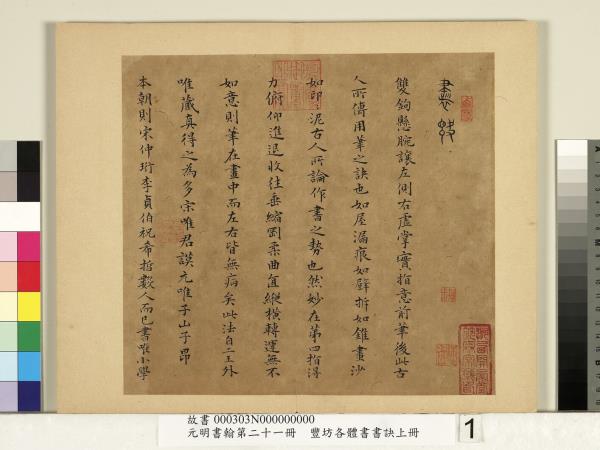 書訣
雙鉤懸腕讓左側右虛掌實指意前筆後此古
人所傳用筆之訣也如屋漏痕如壁拆如錐畫沙
如印〻泥古人所論作書之勢也然妙在第四指得
力俯仰進退收往垂縮剛柔曲直縱橫轉運無不
如意則筆在畫中而左右皆無病矣此法自二王外
唯藏真得之為多宗唯君謨元唯子山子昂
本朝則宋仲珩李貞伯祝希哲數人而已書唯小學
故書 000303N000000000
元明書翰第二十一冊 豐坊各體書書訣上冊
1